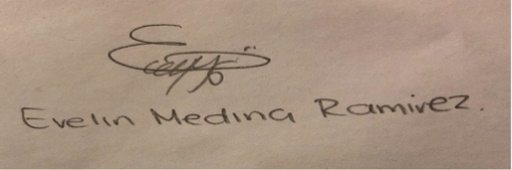 Evelin Medina Ramirez.